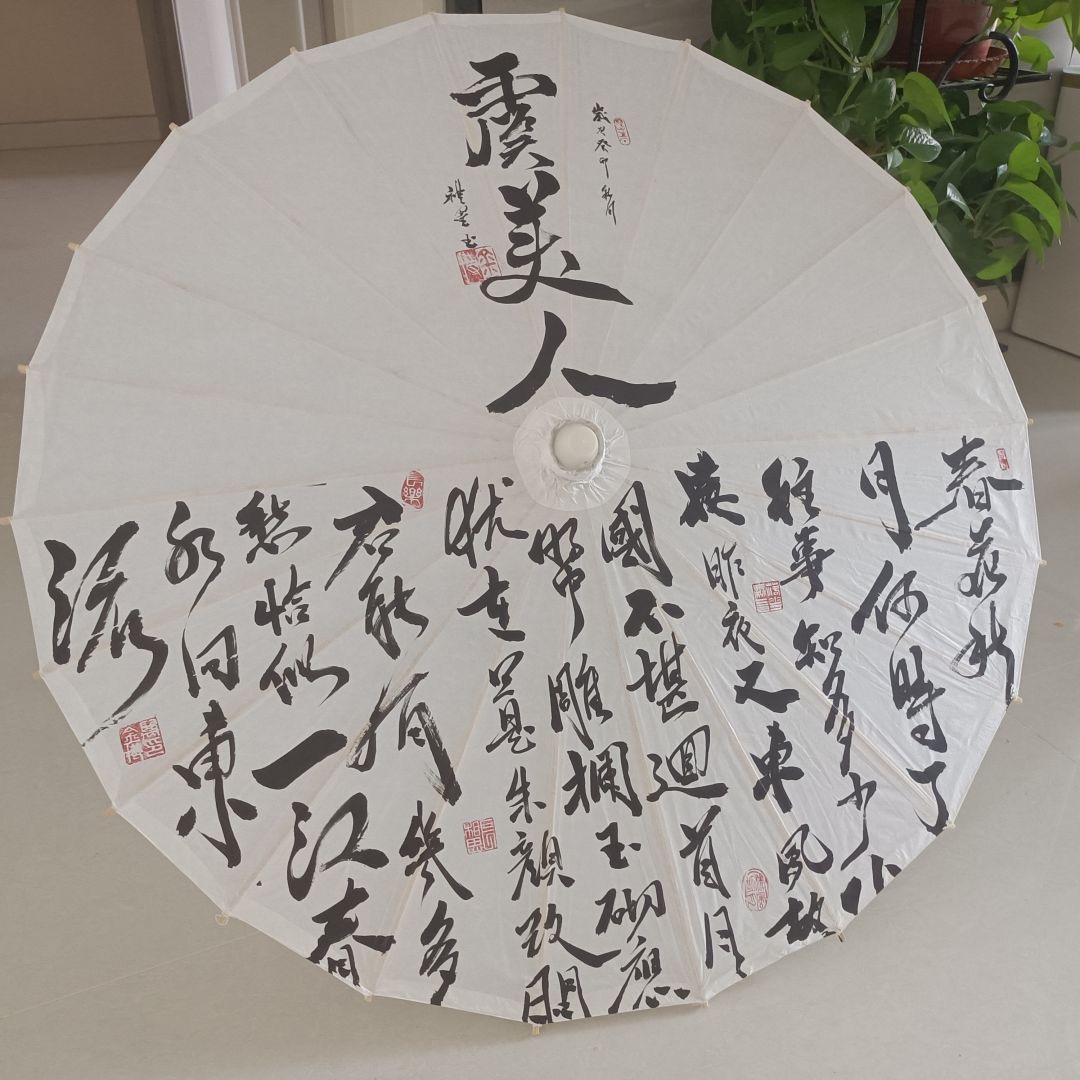 虞美人
歲次癸卯秋月
春花秋
月何時了
往事知多少小
樓昨夜又東風故
國不堪迴首月
明中雕欄玉砌應
猶在只是朱顏改問
君能有幾多
愁恰似一江春
水向東
流